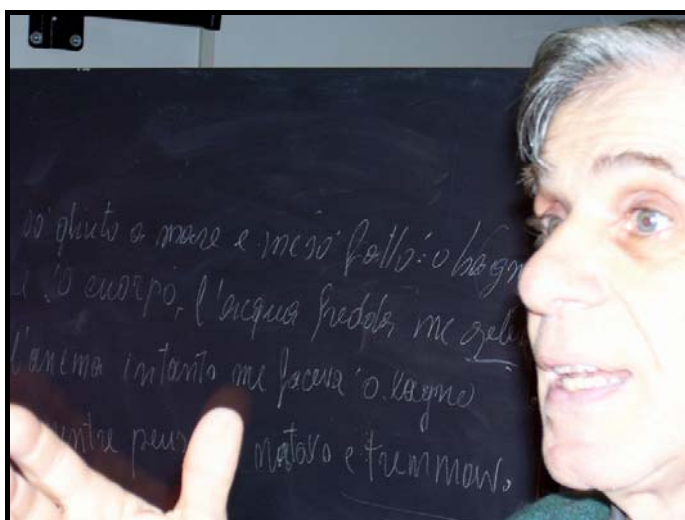 so' ghiuto a mare e me so' fatto 'o bagno
'o cuorpo, l'acqua fredda me
l'anema intanto me faceva 'o bagno
natavo e tremmavo.